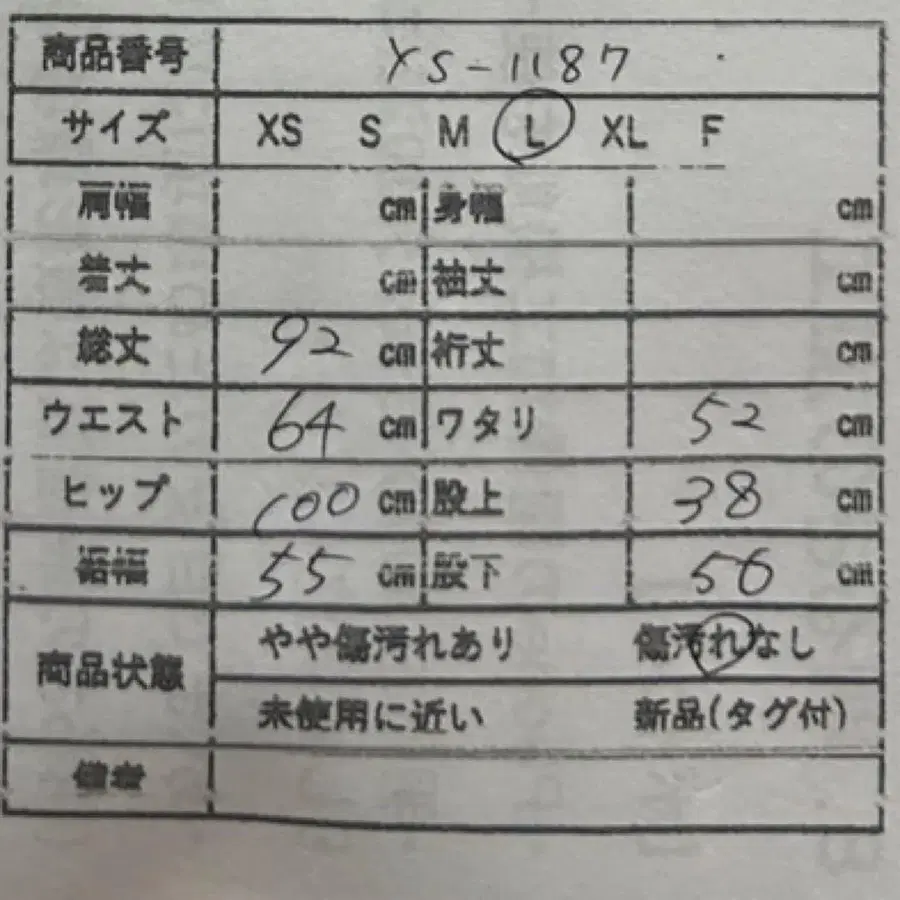 商品番号 YS-1187
サイズ XS S M L XL F
肩幅 cm 身幅 cm
着丈 cm 袖丈 cm
総丈 92 cm 裄丈 cm
ウエスト 64 cm ワタリ 52 cm
ヒップ 100 cm 股上 38 cm
裾幅 55 cm 股下 56 cm
商品状態 やや傷汚れあり 傷汚れなし
未使用に近い 新品(タグ付)
備考